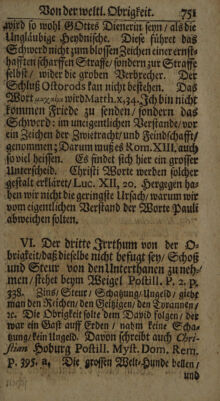 Von der weltl. Obrigkeit. 751
wird so wohl GOttes Dienerin seyn/ als die
Ungläubige Heydnische. Diese führet das
Schwerd nicht zum blossen Zeichen einer ernst-
hafften scharffen Straffe/ sondern zur Straffe
selbst/ wider die groben Verbrecher. Der
Schluß Ostorods kan nicht bestehen. Das
Wort μάχαιραν wird Matth. x, 34. Ich bin nicht
kommen Friede zu senden/ sondern das
Schwerd: in uneigentlichen Verstande/ vor
ein Zeichen der Zwietracht/ und Feindschafft/
genommen; Darum muß es Rom. XIII. auch
so viel heissen. Es findet sich hier ein grosser
Unterscheid. Christi Worte werden solcher
gestalt erkläret/ Luc. XII, 20. Hergegen ha-
ben wir nicht die geringste Ursach/ warum wir
vom eigentlichen Verstand der Worte Pauli
abweichen solten.
VI. Der dritte Irrthum von der O-
brigkeit/ daß dieselbe nicht befugt sey/ Schoß
und Steur von den Unterthanen zu neh-
men/ stehet beym Weigel Postill. P. 2. p.
338. Zins/ Steur/ Schatzung/ Ungeld/ giebt
man den Reichen/ den Geitzigen/ den Tyrannen/
ꝛc. Die Obrigkeit solte dem David folgen/ der
war ein Gast auff Erden/ nahm keine Scha-
tzung/ kein Ungeld. Davon schreibt auch Chri-
stian Hoburg Postill. Myst. Dom. Rem.
p. 395. a. Die grossen Welt-Hunde bellen/
und